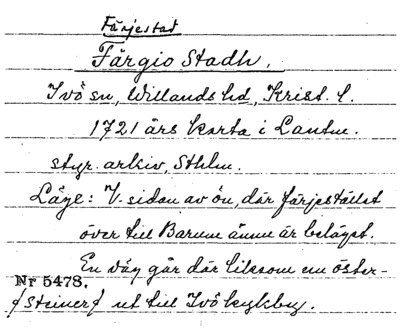 Färjestad
Färgio Stadh.
Ivö sn, Willands hd, Krist. l.
1721 års karta i Lantm.
styr. arkiv, Sthlm.
Läge: V. sidan av ön, där färjestället
över till Barum ännu är beläget.
En väg går där liksom en öster-
Nr 5478.
/Steiner/ ut till Ivö kyrkby.